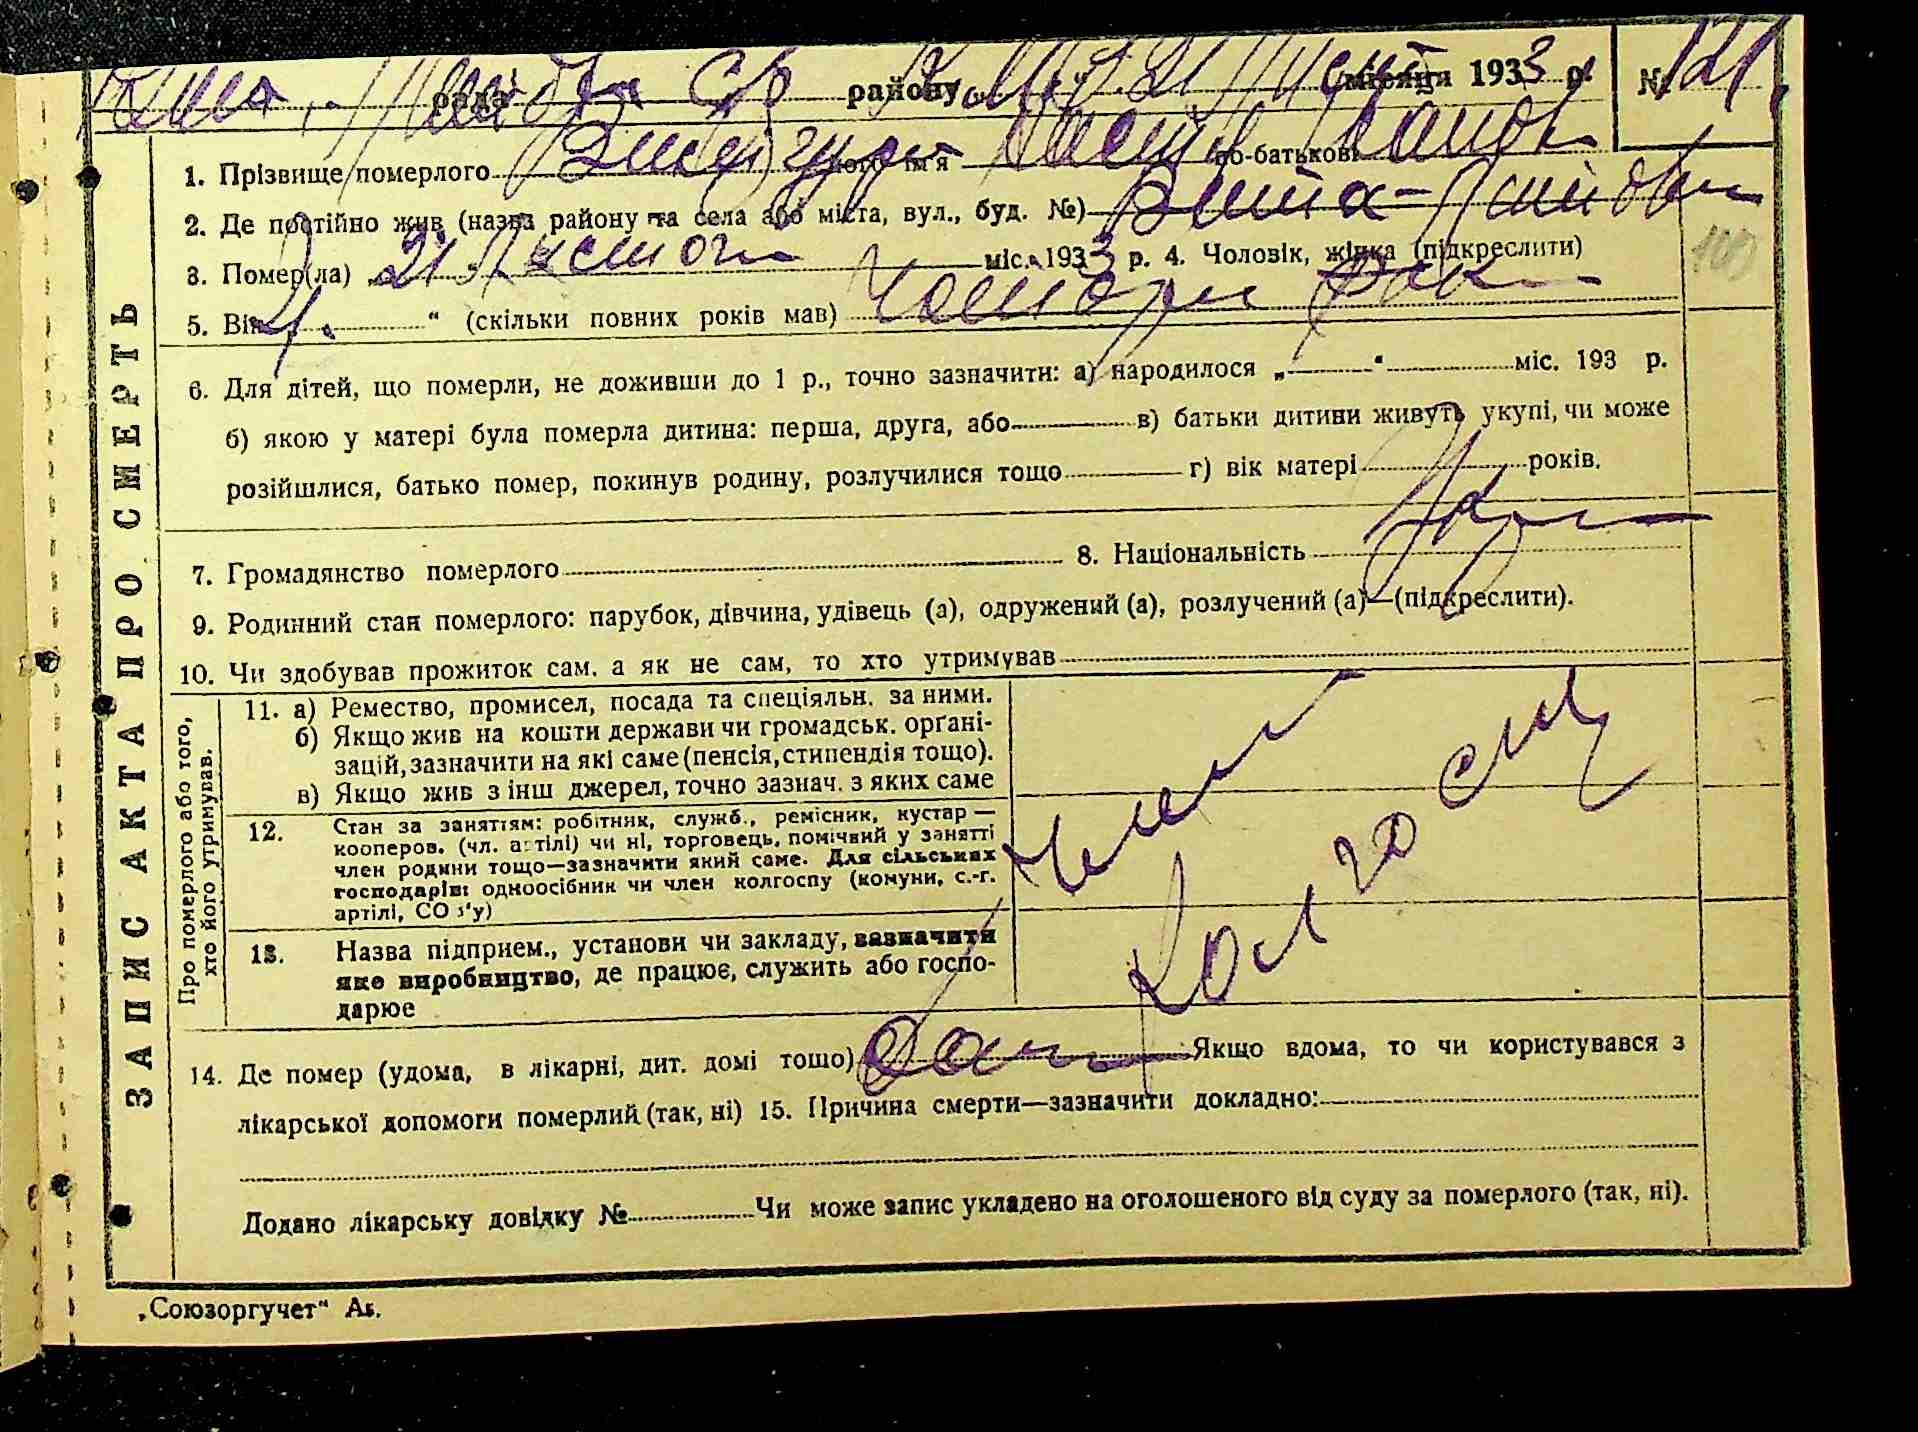 рада району місяця 1933 р. № 121
1. Прізвище померлого його ім'я по-батькові
2. Де постійно жив (назва району та села або міста, вул., буд. №) Вита-
3. Помер(ла) „21 міс. 1933 р. 4. Чоловік, жінка (підкреслити)
5. Вік 4. “ (скільки повних років мав) Чотири роки
6. Для дітей, що померли, не доживши до 1 р., точно зазначити: а) народилося „ “ міс. 193 р.
б) якою у матері була померла дитина: перша, друга, або в) батьки дитини живуть укупі, чи може
розійшлися, батько помер, покинув родину, розлучилися тощо г) вік матері років.
7. Громадянство померлого 8. Національність Укр
9. Родинний стан померлого: парубок, дівчина, удівець (а), одружений (а), розлучений (а)—(підкреслити).
10. Чи здобував прожиток сам. а як не сам, то хто утримував
ЗАПИС АКТА ПРО СМЕРТЬ
Про померлого або того,
хто його утримував.
11. а) Ремество, промисел, посада та спеціяльн. за ними.
б) Якщо жив на кошти держави чи громадськ. орґані-
зацій, зазначити на які саме (пенсія, стипендія тощо).
в) Якщо жив з інш джерел, точно зазнач. з яких саме
12. Стан за заняттям: робітник, служб., ремісник, кустар —
кооперов. (чл. артілі) чи ні, торговець, помічний у занятті
член родини тощо—зазначити який саме. Для сільських
господарів: одноосібник чи член колгоспу (комуни, с.-г.
артілі, СО з'у)
член
колгоспу
13. Назва підприєм., установи чи закладу, зазначити
яке виробництво, де працює, служить або госпо-
дарює
14. Де помер (удома, в лікарні, дит. домі тощо) Якщо вдома, то чи користувався з
лікарської допомоги померлий (так, ні) 15. Причина смерти—зазначити докладно:
Додано лікарську довідку № Чи може запис укладено на оголошеного від суду за померлого (так, ні).
„Союзоргучет“ Ак.
100